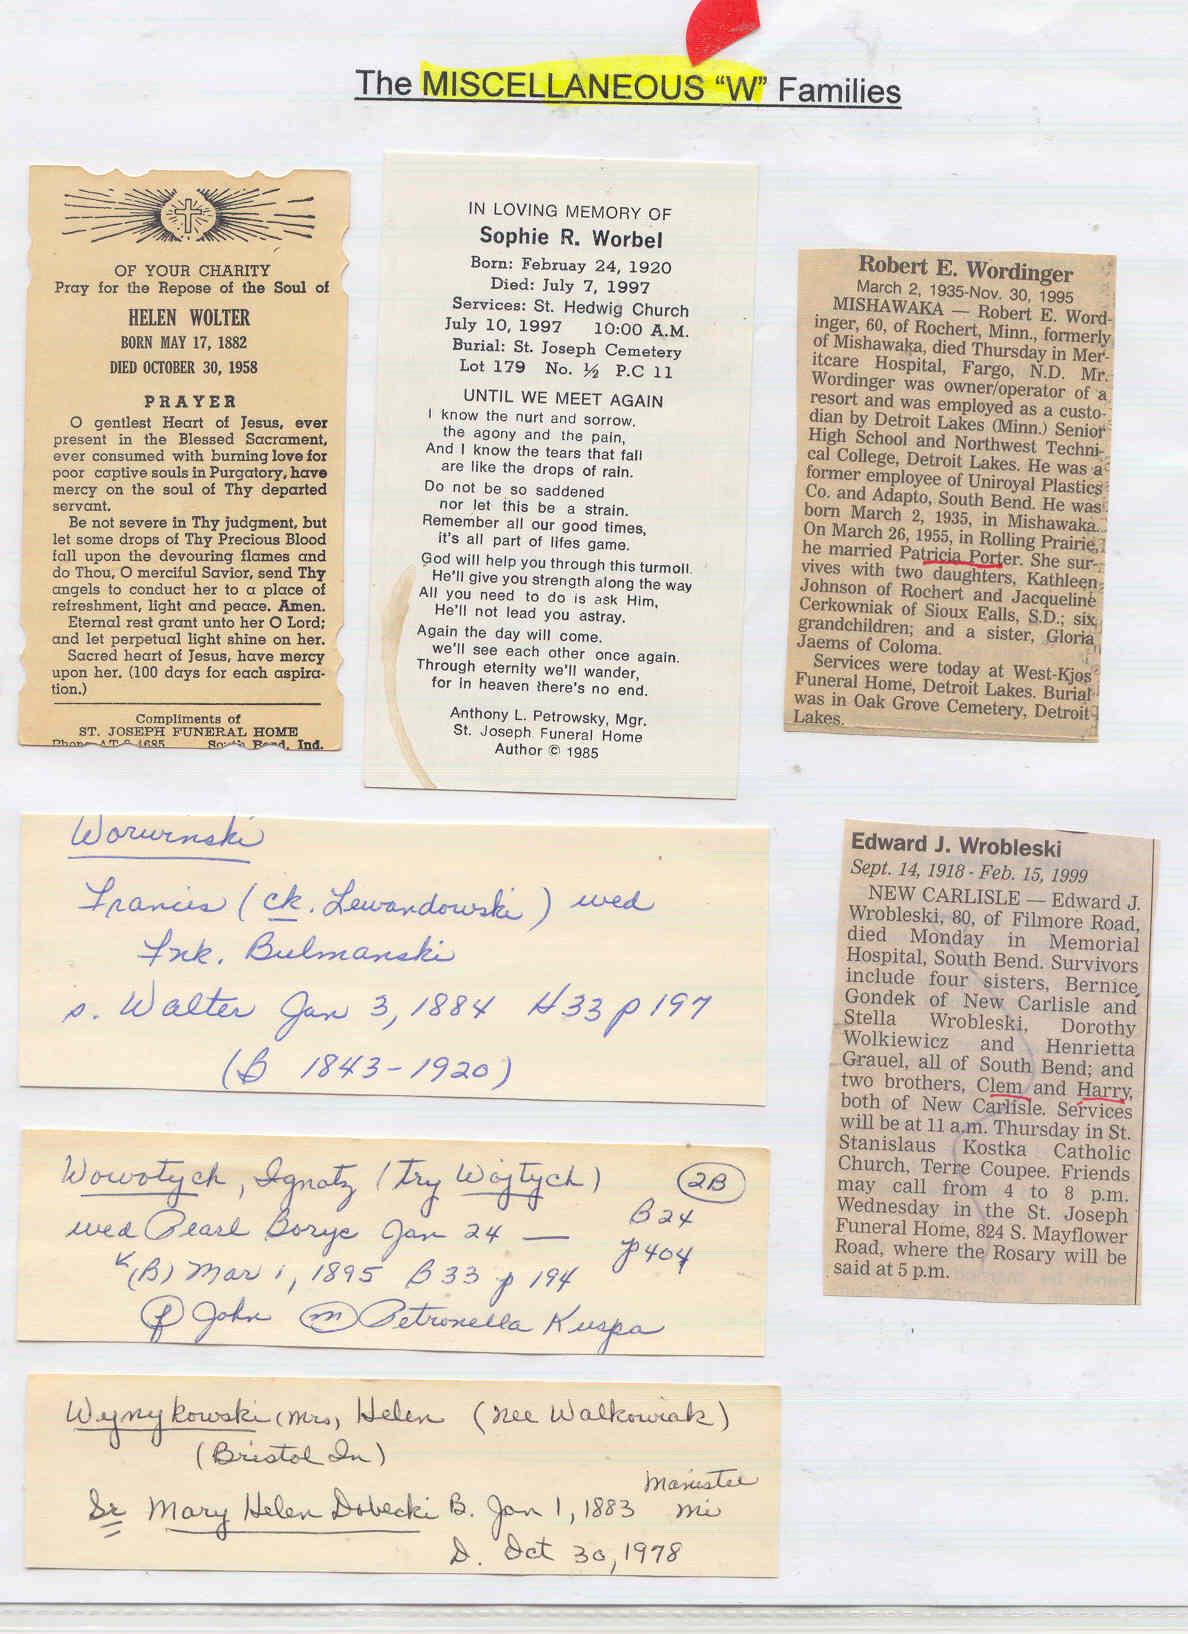 The MISCELLANEOUS “W” Families
OF YOUR CHARITY
Pray for the Repose of the Soul of
HELEN WOLTER
BORN MAY 17, 1882
DIED OCTOBER 30, 1958
PRAYER
O gentlest Heart of Jesus, ever
present in the Blessed Sacrament,
ever consumed with burning love for
poor captive souls in Purgatory, have
mercy on the soul of Thy departed
servant.
Be not severe in Thy judgment, but
let some drops of Thy Precious Blood
fall upon the devouring flames and
do Thou, O merciful Savior, send Thy
angels to conduct her to a place of
refreshment, light and peace. Amen.
Eternal rest grant unto her O Lord;
and let perpetual light shine on her.
Sacred heart of Jesus, have mercy
upon her. (100 days for each aspira-
tion.)
Compliments of
ST. JOSEPH FUNERAL HOME
Phone AT 4685 South Bend, Ind.
IN LOVING MEMORY OF
Sophie R. Worbel
Born: Februay 24, 1920
Died: July 7, 1997
Services: St. Hedwig Church
July 10, 1997 10:00 A.M.
Burial: St. Joseph Cemetery
Lot 179 No. ½ P.C 11
UNTIL WE MEET AGAIN
I know the nurt and sorrow.
the agony and the pain,
And I know the tears that fall
are like the drops of rain.
Do not be so saddened
nor let this be a strain.
Remember all our good times,
it's all part of lifes game.
God will help you through this turmoll.
He'll give you strength along the way
All you need to do is ask Him,
He'll not lead you astray.
Again the day will come.
we'll see each other once again.
Through eternity we'll wander,
for in heaven there's no end.
Anthony L. Petrowsky, Mgr.
St. Joseph Funeral Home
Author © 1985
Robert E. Wordinger
March 2, 1935-Nov. 30, 1995
MISHAWAKA — Robert E. Word-
inger, 60, of Rochert, Minn., formerly
of Mishawaka, died Thursday in Mer-
itcare Hospital, Fargo, N.D. Mr.
Wordinger was owner/operator of a
resort and was employed as a custo-
dian by Detroit Lakes (Minn.) Senior
High School and Northwest Techni-
cal College, Detroit Lakes. He was a
former employee of Uniroyal Plastics
Co. and Adapto, South Bend. He was
born March 2, 1935, in Mishawaka.
On March 26, 1955, in Rolling Prairie,
he married Patricia Porter. She sur-
vives with two daughters, Kathleen
Johnson of Rochert and Jacqueline
Cerkowniak of Sioux Falls, S.D.; six
grandchildren; and a sister, Gloria
Jaems of Coloma.
Services were today at West-Kjos
Funeral Home, Detroit Lakes. Burial
was in Oak Grove Cemetery, Detroit
Lakes.
Worwinski
Francis (ck. Lewandowski) wed
Fnk. Bulmanski
s. Walter Jan 3, 1884 H33 p 197
(B 1843-1920)
Edward J. Wrobleski
Sept. 14, 1918 - Feb. 15, 1999
NEW CARLISLE — Edward J.
Wrobleski, 80, of Filmore Road,
died Monday in Memorial
Hospital, South Bend. Survivors
include four sisters, Bernice
Gondek of New Carlisle and
Stella Wrobleski, Dorothy
Wolkiewicz and Henrietta
Grauel, all of South Bend; and
two brothers, Clem and Harry,
both of New Carlisle. Services
will be at 11 a.m. Thursday in St.
Stanislaus Kostka Catholic
Church, Terre Coupee. Friends
may call from 4 to 8 p.m.
Wednesday in the St. Joseph
Funeral Home, 824 S. Mayflower
Road, where the Rosary will be
said at 5 p.m.
Wowotych, Ignatz (try Wojtych) 2B
wed Pearl Boryc Jan 24 — B24
p404
(B) Mar 1, 1895 B33 p 194
(f) John (m) Petronella Kuspa
Wynykowski (Mrs, Helen (nee Walkowiak)
(Bristol In)
Sr Mary Helen Dobecki B. Jan 1, 1883 Manistee Mi
D. Oct 30, 1978